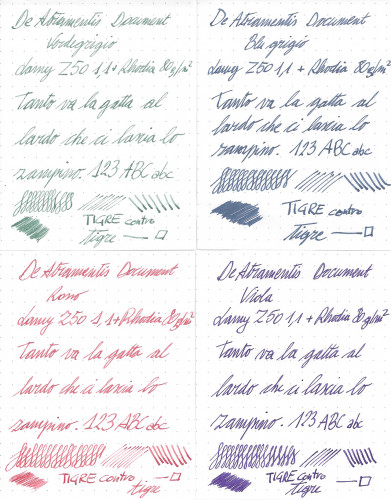 De Atramentis Document
Verdegrigio
Lamy Z50 1,1 + Rhodia 80g/m²
Tanto va la gatta al
lardo che ci lascia lo
zampino. 123 ABC abc
TIGRE contro
tigre
De Atramentis Document
Blu grigio
Lamy Z50 1,1 + Rhodia 80g/m²
Tanto va la gatta al
lardo che ci lascia lo
zampino. 123 ABC abc
TIGRE contro
tigre
De Atramentis Document
Rosso
Lamy Z50 1,1 + Rhodia 80g/m²
Tanto va la gatta al
lardo che ci lascia lo
zampino. 123 ABC abc
TIGRE contro
tigre
De Atramentis Document
Viola
Lamy Z50 1,1 + Rhodia 80g/m²
Tanto va la gatta al
lardo che ci lascia lo
zampino. 123 ABC abc
TIGRE contro
tigre